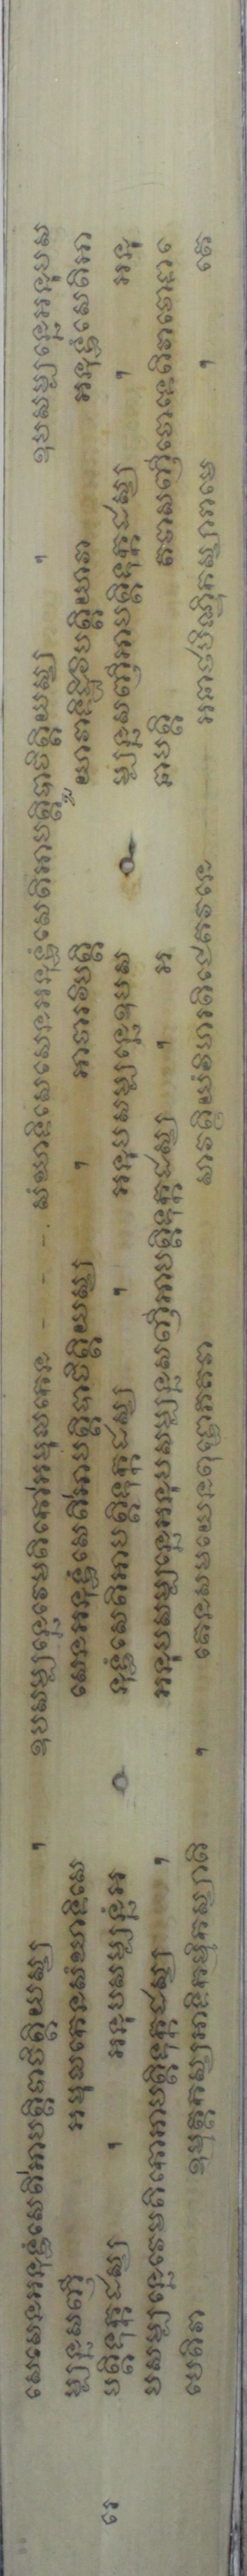 សេសេនអនុទ្ធំសេតិអាបត្តិបាចិត្តិយស្ស ។ ឧបសម្បន្នេវេមតិកោអមុលកេន - - - សំឃាទិសេសេនអនុទ្ធំសេតិអាបត្តិបាចិត្តិយស្ស ។ ឧបសម្បន្នេអនុបស
ម្បន្នសញី អមុលកេនសំឃាទិសេ សេនអនុទ្ធំសេតិអាបត្តិបាចិត្តិយស្ស ។ អាចារវិបត្តិ យាវាទិដ្ឋិវិបត្តិយាវា អនុទ្ធំសេតិអា
រេ បត្តិទុក្កដស្ស ។ អនុបសម្បន្នំអ នុទ្ធំសេតិអាបត្តិទុក្កដស្ស ។ អនុបសម្បន្នេឧបស ម្បន្នសញីអាបត្តិទុក្កដស្ស ។ អនុ
បសម្បន្នេវេមតិកោអាបត្តិទុក្កដស្ស ។ អនុបសម្បន្នេអនុបសម្បន្នសញីអាបត្តិទុក្កដស្ស ។ អ នាបត្តិ តថាសញីចោទេតិវាចោទា
បេតិវា ឧម្មត្តកស្សអាទិកម្មិកស្សាតិ ។ តេនសមយេនពុទ្ធោភគវា សាវត្ថិយំវិហរតិជេតវនេ អនាថបិណ្ឌិកស្សារាមេ ។ តេ